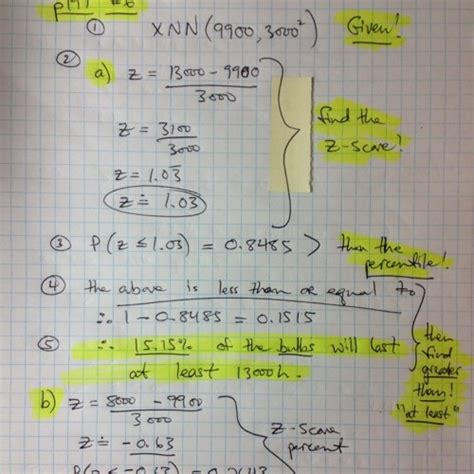 p191 #6
① X~N(9900, 3000²) Given!
② a) z = 13000 - 9900
3000
z = 3100
3000
z = 1.03̄
z ≐ 1.03
find the
z-score!
③ P(z ≤ 1.03) = 0.8485 > then the
percentile!
④ the above is less than or equal to
∴ 1 - 0.8485 = 0.1515
⑤ ∴ 15.15% of the bulbs will last
at least 13000h.
then
find
greater
than!
"at least"
b) z = 8000 - 9900
3000
z ≐ -0.63
z-score
percent
P(z ≤ -0.63) = 0.2643